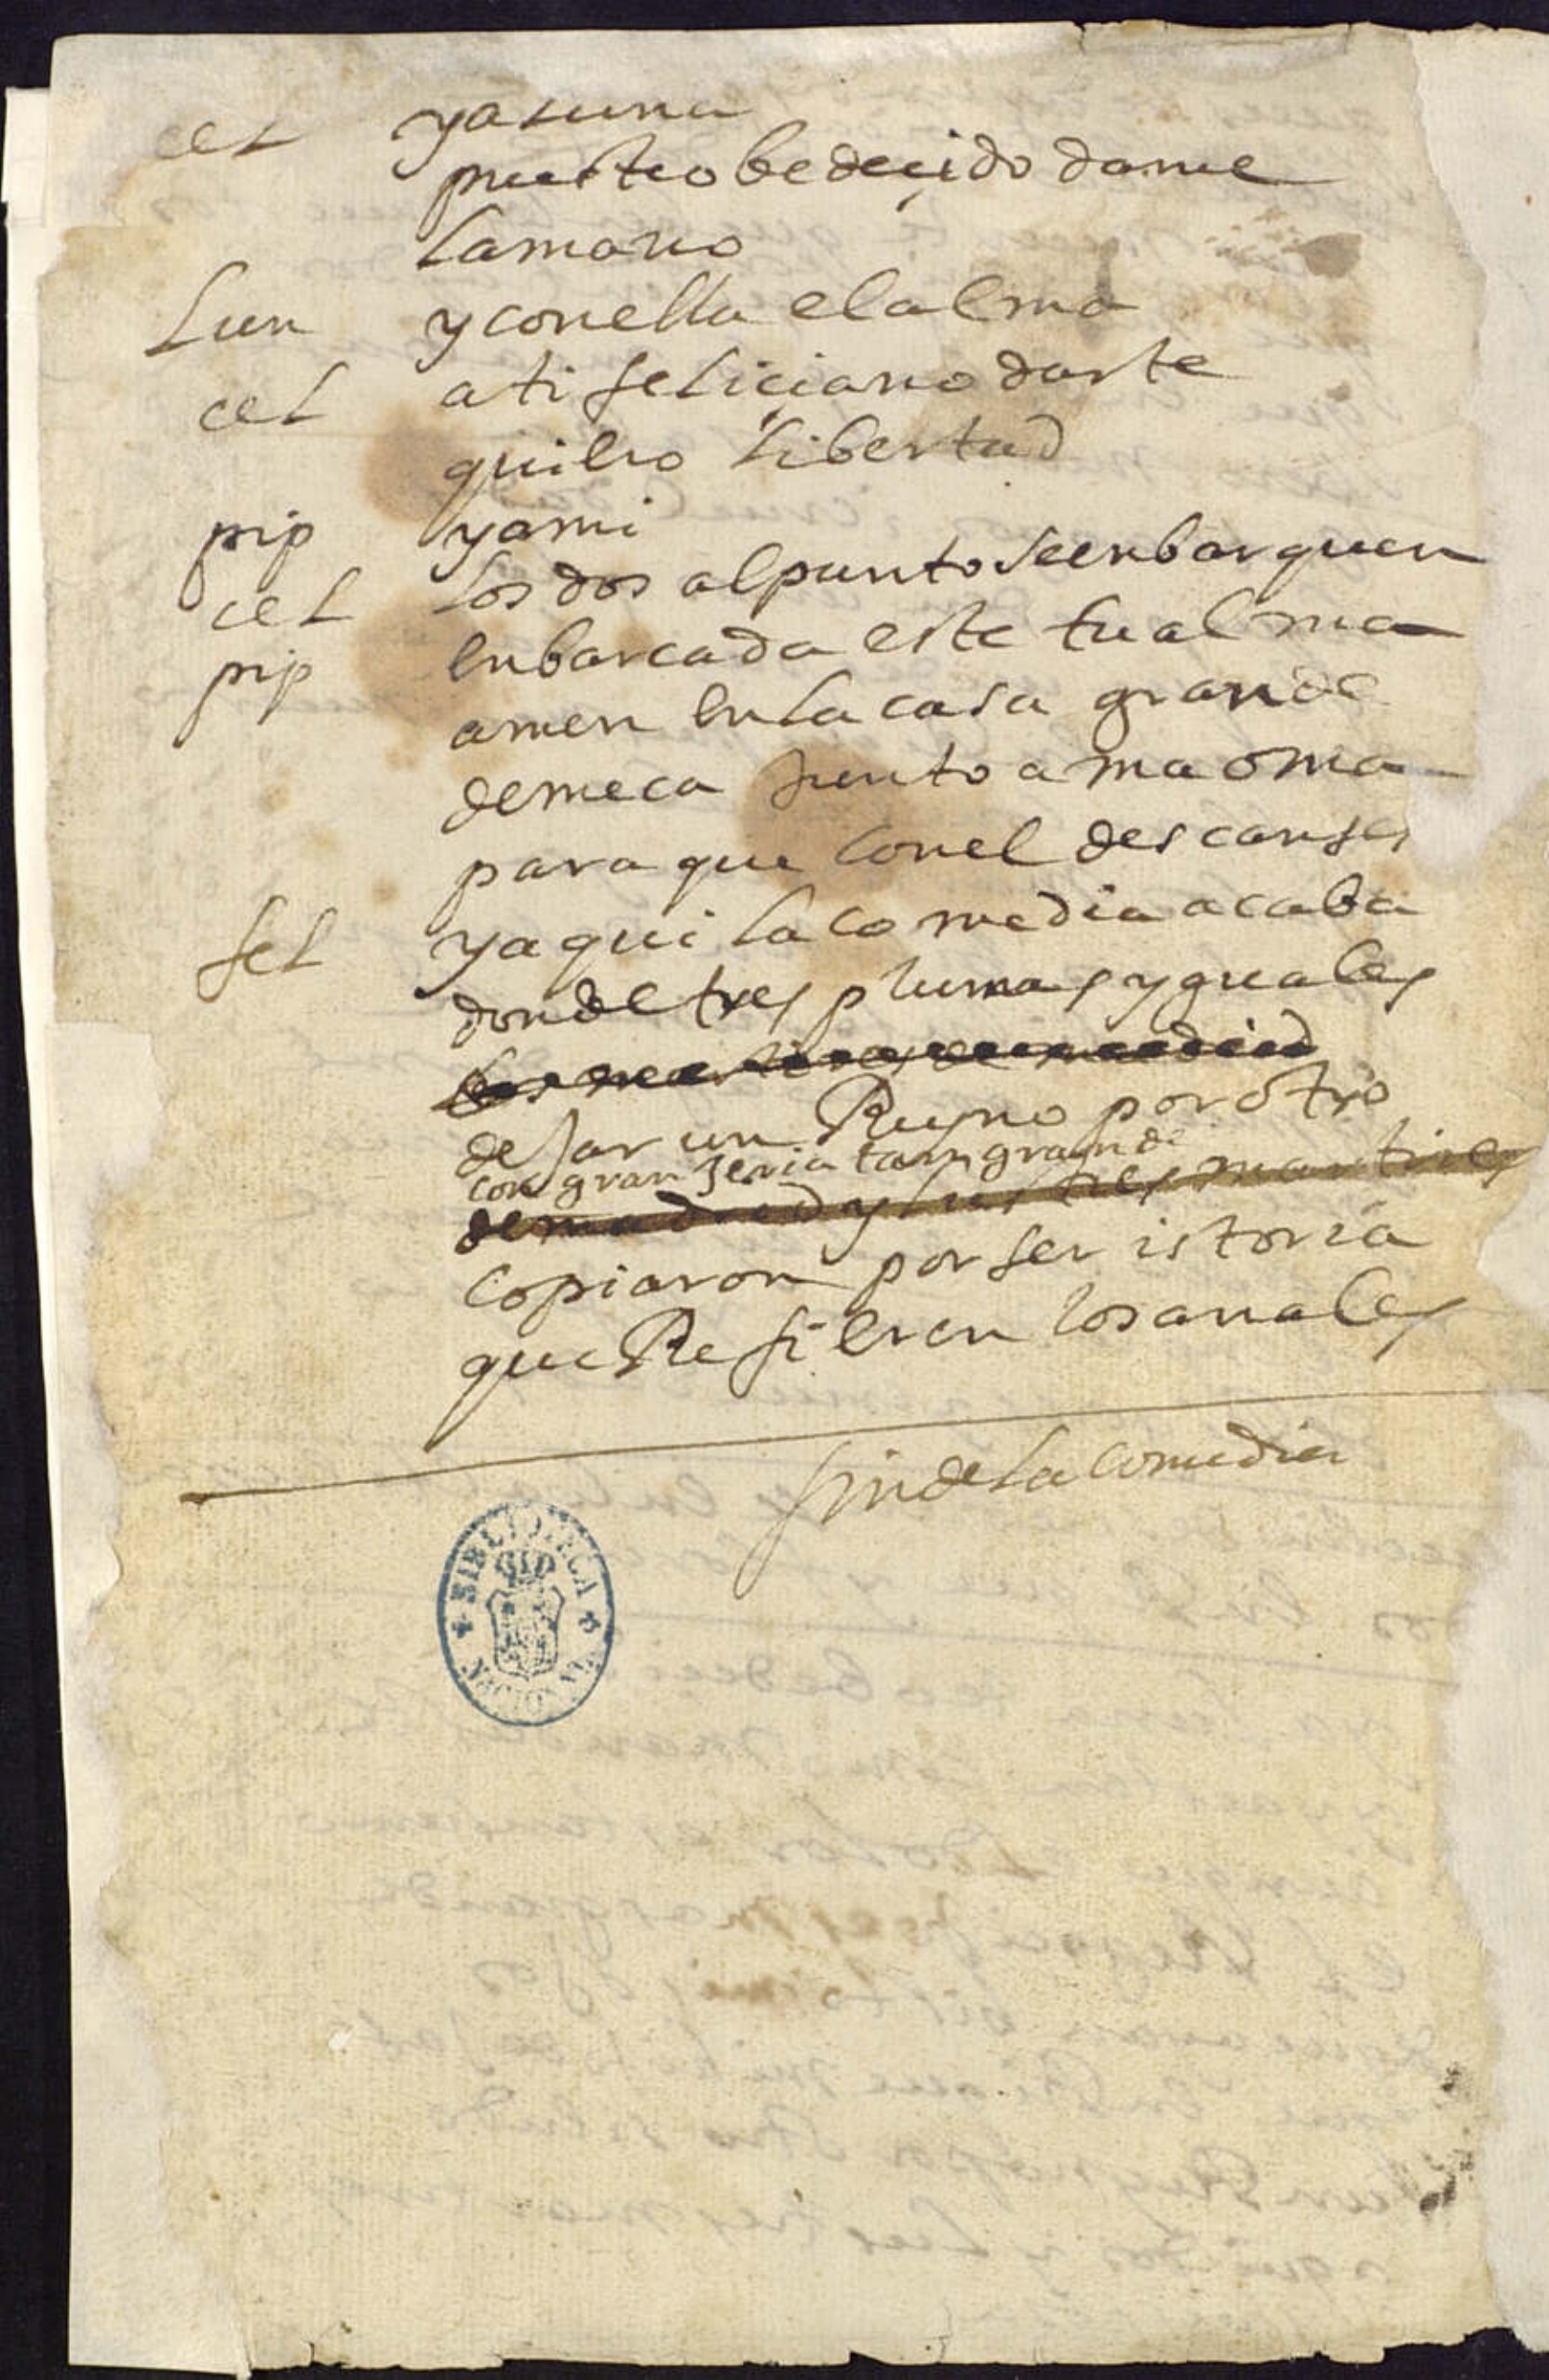 cel ya luna
pues te obedecido dame
la mano
Lun y con ella el alma
cel a ti feliciano darte
quiero libertad
pip y a mi
cel los dos al punto se enbarquen
pip enbarcada este tu alma
amen en la casa grande
de meca junto a maoma
para que con el descanses
fel y aqui la comedia acaba
donde tres plumas yguales
dejar un Reyno por otro
con gran
de madrid y sus tres martires
copiaron por ser istoria
que Refieren los anales
fin de la comedia
BIBLIOTECA NACIONAL